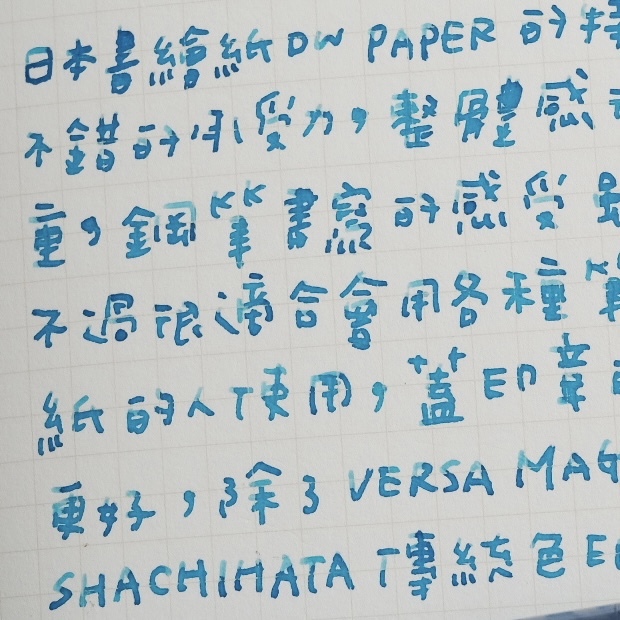 日本書繪紙 DW PAPER 的
不錯的吸受力，整體感
重，鋼筆書寫的感受
不過很適合會用各種筆
紙的人使用，蓋印章
更好，除了 VERSA MAG
SHACHIHATA 傳統色